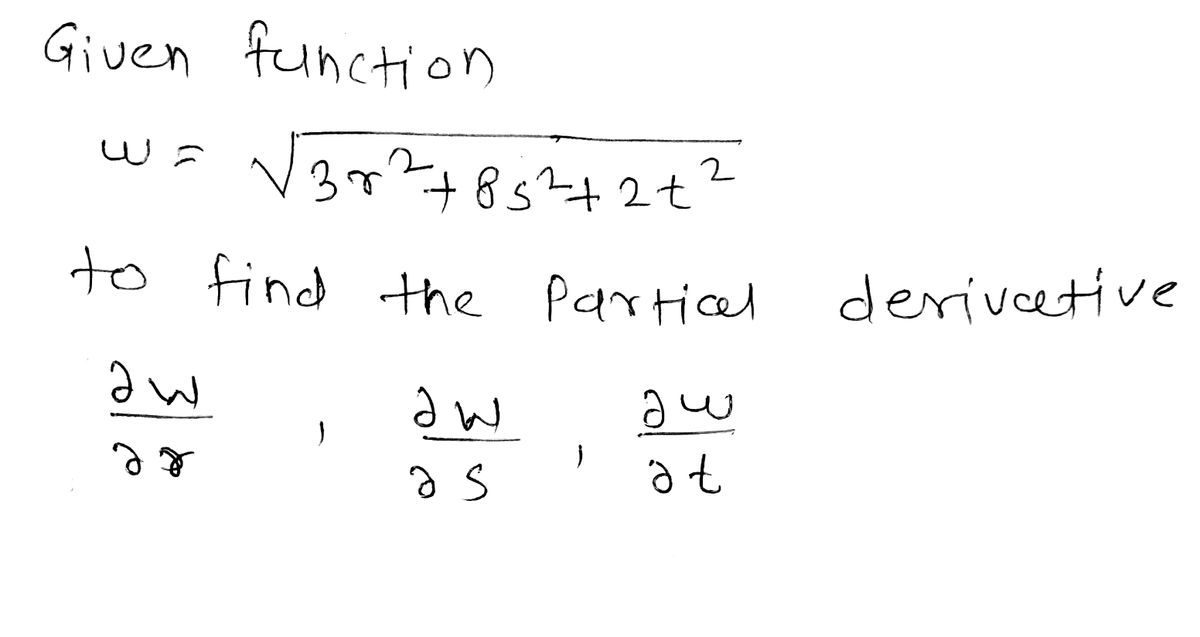 Given function
w = √3r²+8s²+2t²
to find the Partial derivative
∂w/∂r , ∂w/∂s , ∂w/∂t